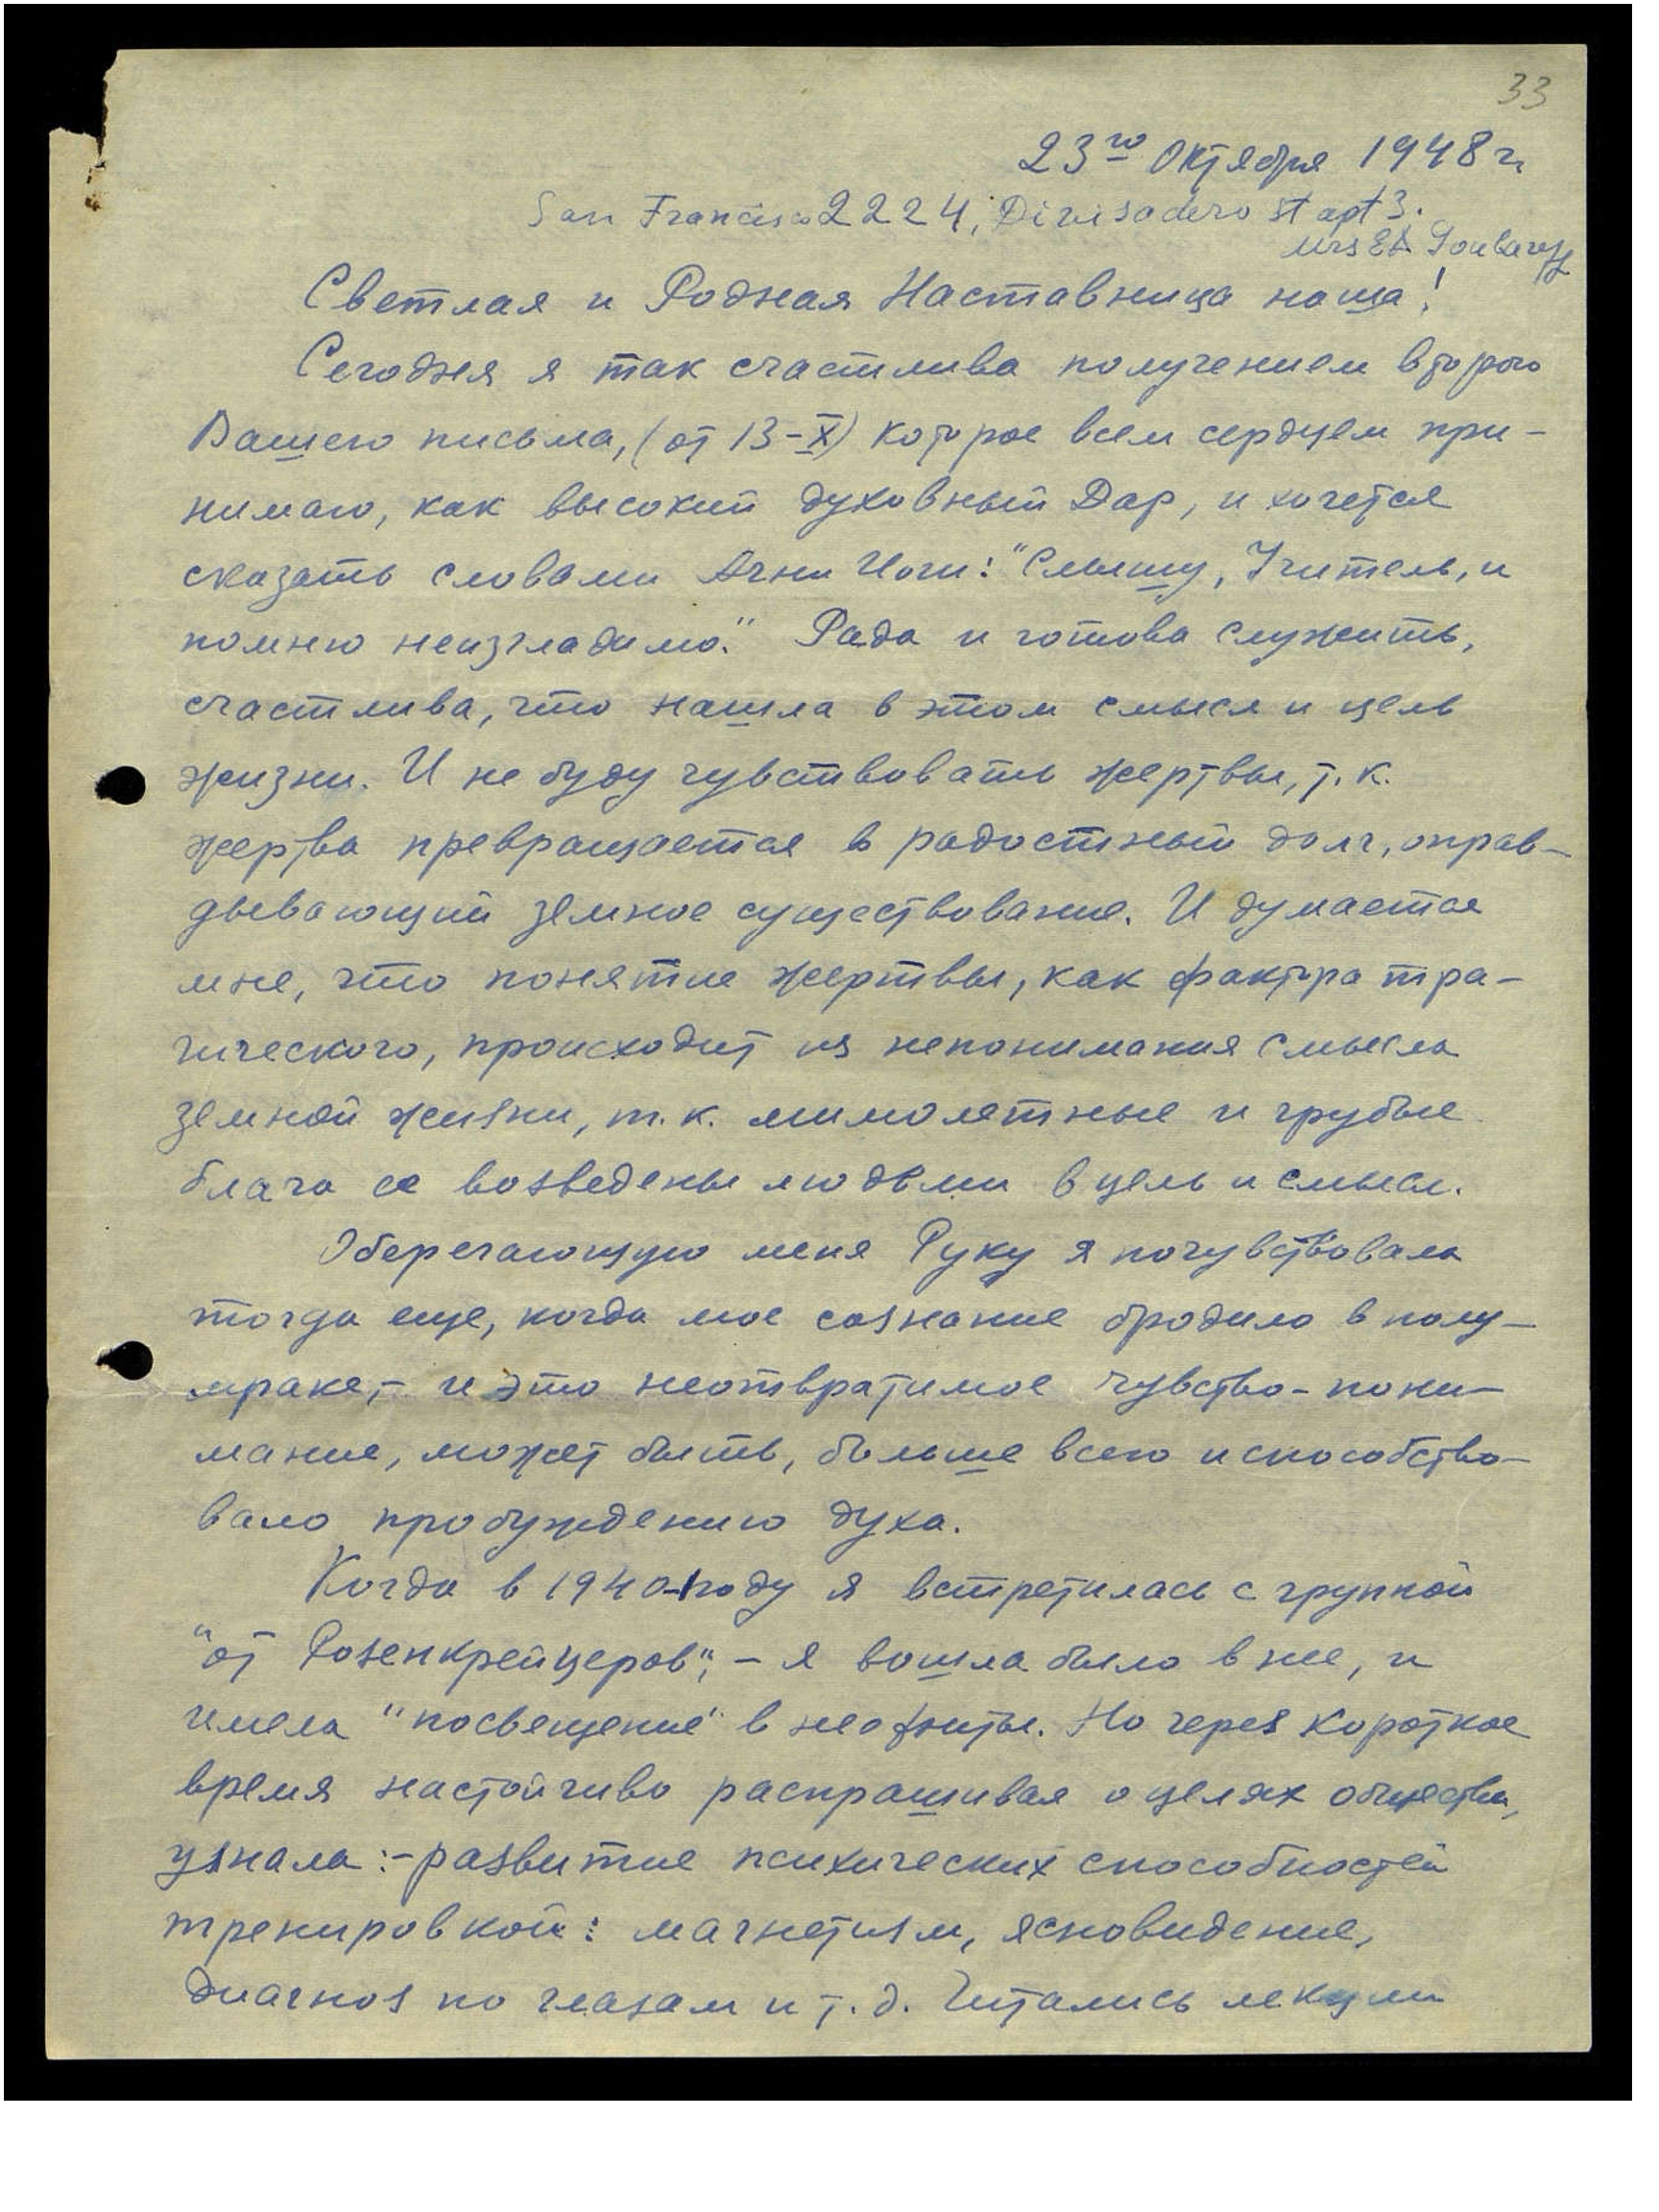 33
23го Октября 1948 г.
San Francisco 2224, Divisadero st apt 3.
Mrs
Светлая и Родная Наставница наша!
Сегодня я так счастлива получением второго
Вашего письма, (от 13-X) которое всем сердцем при-
нимаю, как высокий духовный Дар, и хочется
сказать словами Агни Йоги: "Слышу, Учитель, и
помню неизгладимо." Рада и готова служить,
счастлива, что нашла в этом смысл и цель
жизни. И не буду чувствовать жертвы, т.к.
жертва превращается в радостный долг, оправ-
дывающий земное существование. И думается
мне, что понятие жертвы, как фактора тра-
гического, происходит из непонимания смысла
земной жизни, т.к. мимолетные и грубые
блага ее возведены людьми в цель и смысл.
Оберегающую меня Руку я почувствовала
тогда еще, когда мое сознание бродило в полу-
мраке,- и это неотвратимое чувство-пони-
мание, может быть, больше всего и способство-
вало пробуждению духа.
Когда в 1940-году я встретилась с группой
"от Розенкрейцеров", - я вошла было в нее, и
имела "посвещение" в неофиты. Но через короткое
время настойчиво распрашивая о целях общества,
узнала:- развитие психических способностей
тренировкой: магнетизм, ясновидение,
диагноз по глазам и т.д. Читались лекции